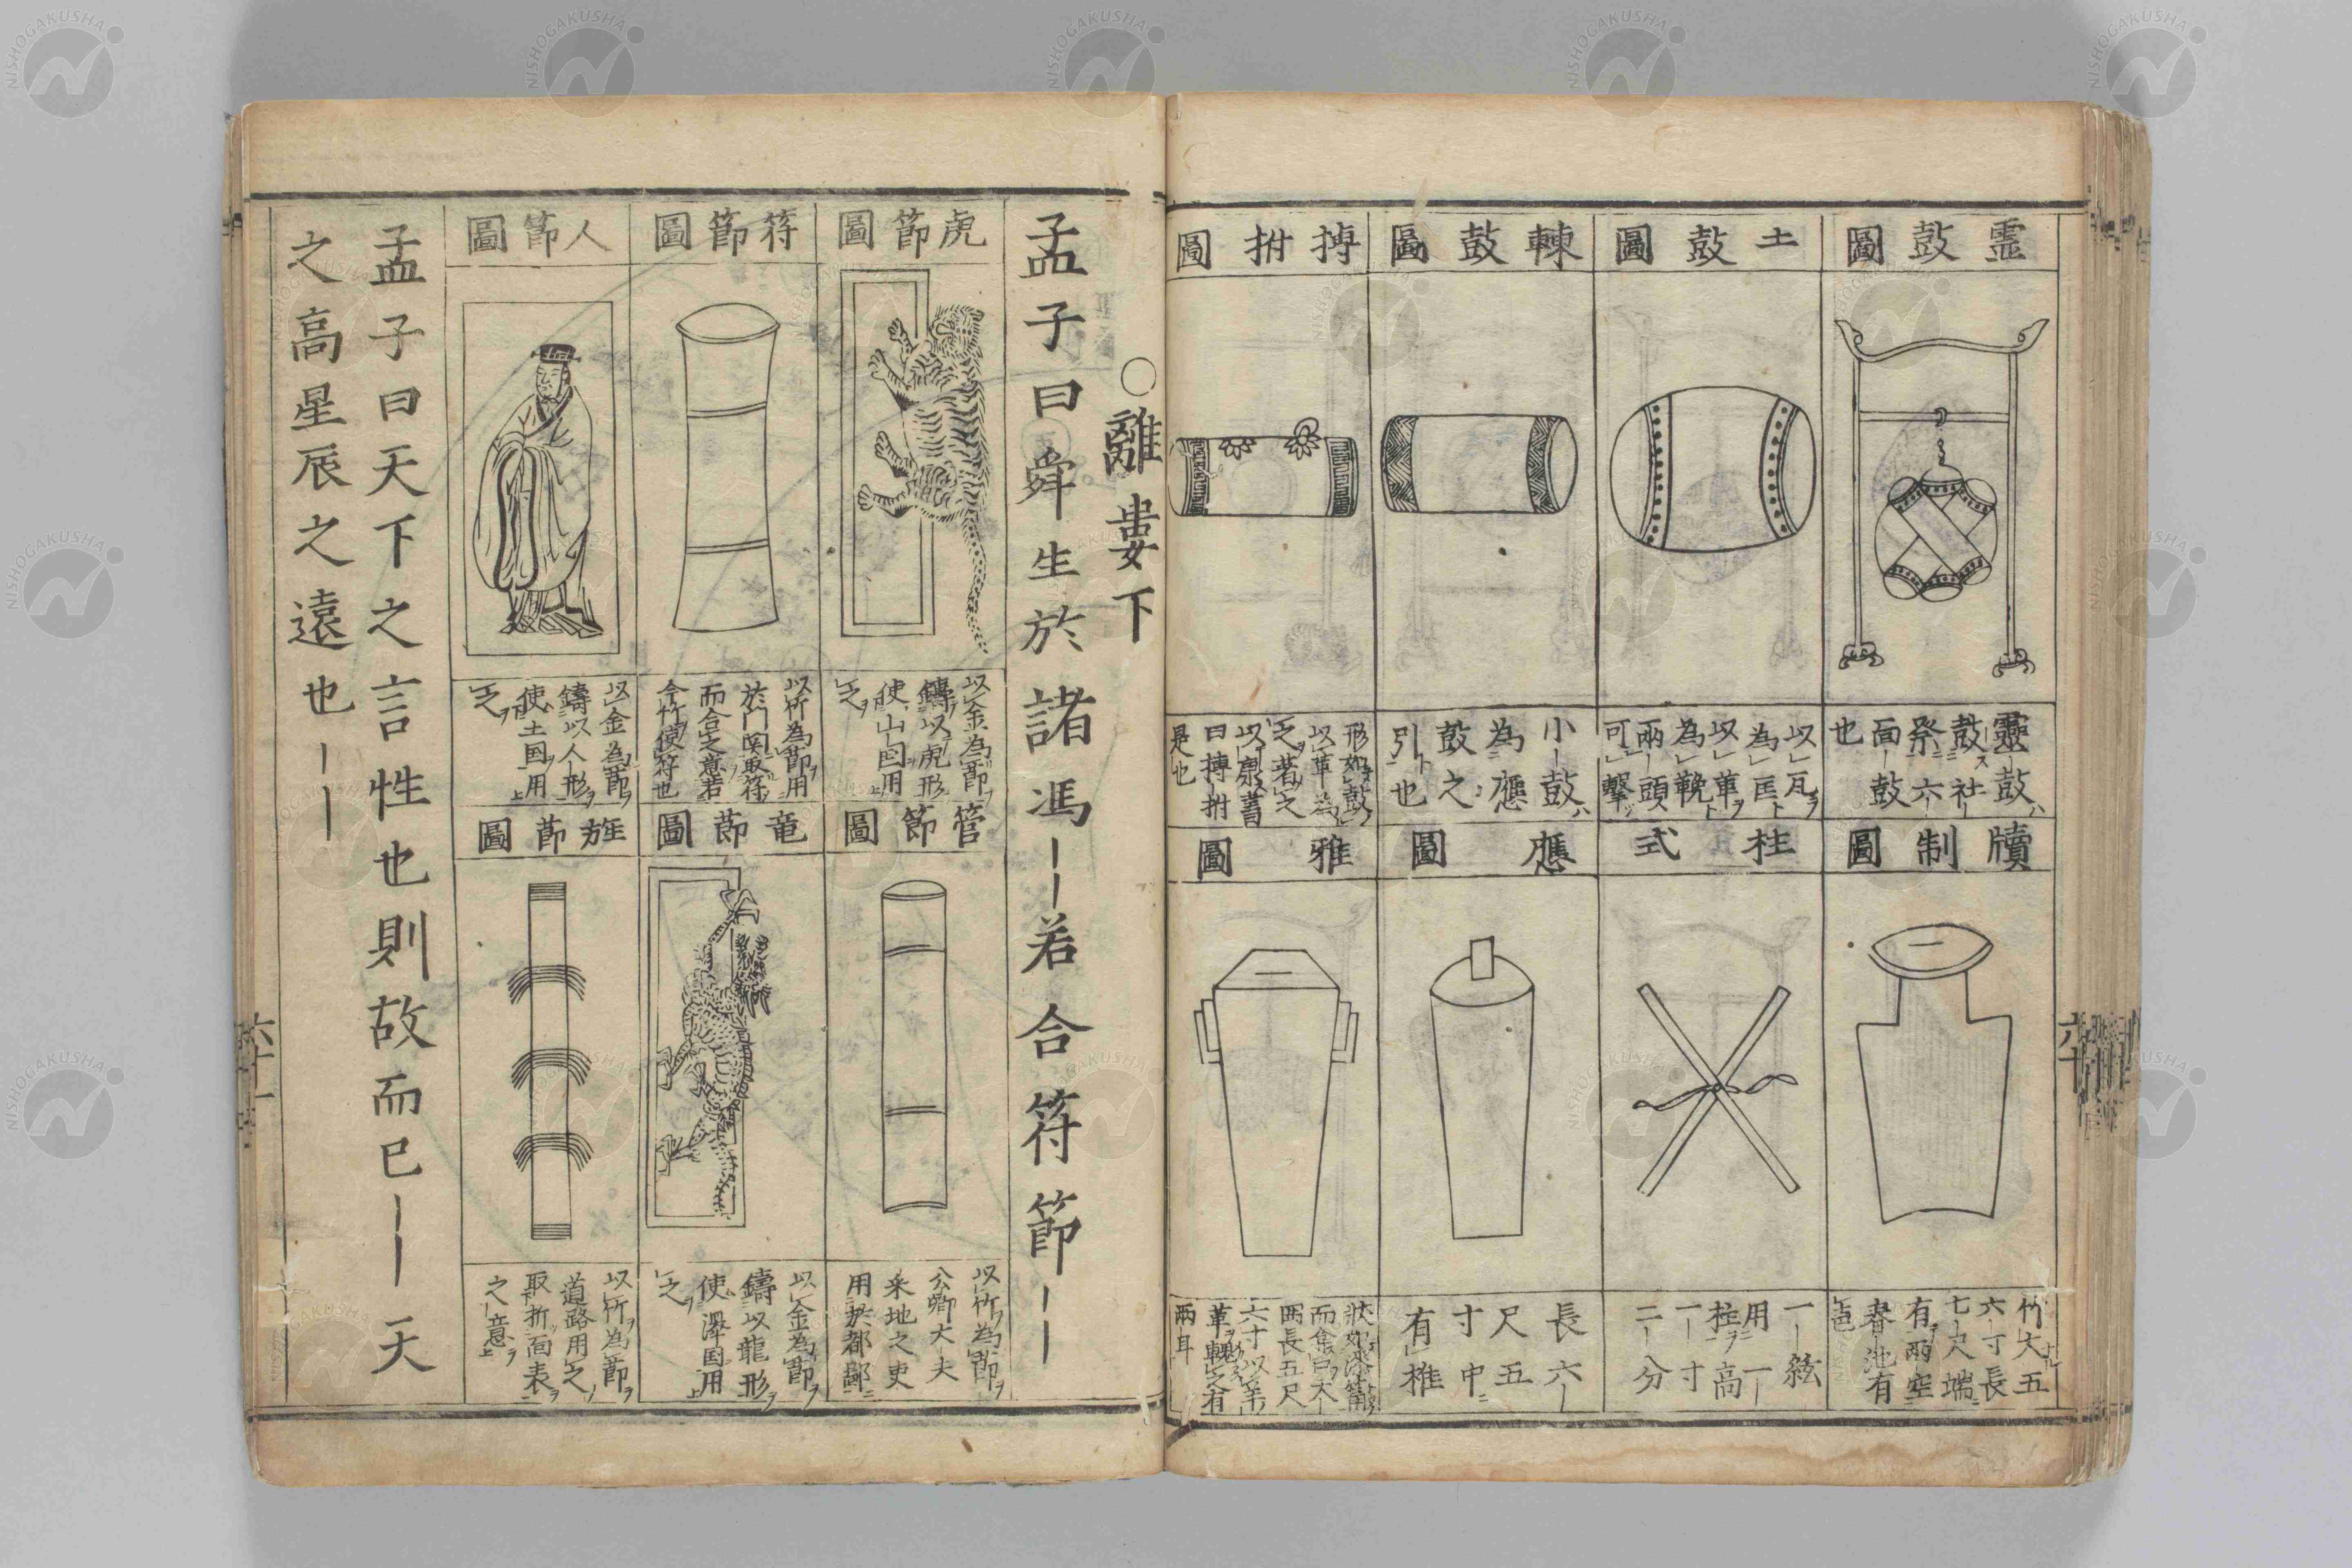 霊鼓圖
靈鼓
鼓社
祭六
面鼓
也
土鼓圖
以瓦
為匡
以革
為鞔
兩頭
可撃
鼓圖
小鼓
為應
鼓之
引也
搏拊圖
形如鼓
以革為
之著之
以糠書
曰搏拊
是也
牘制圖
竹大五
六寸長
七尺端
有兩空
池有
柱式
一絃
用一
柱高
一寸
二分
應圖
長六
尺五
寸中
有椎
雅圖
狀如漆筩
而弇口大
兩長五尺
六寸以羊
革鞔之有
兩耳
六十
○離婁下
孟子曰舜生於諸馮――若合符節――
虎節圖
以金為節
鑄以虎形
使山国用
之
符節圖
以竹為節用
於門関取符
而合之意若
今竹使符也
人節圖
以金為節
鑄以人形
使土国用
之
管節圖
以竹為節
公卿大夫
采地之吏
用於都鄙
竜節圖
以金為節
鑄以龍形
使澤国用
之
旌節圖
以竹為節
道路用之
取折面表
之意
孟子曰天下之言性也則故而已――天
之高星辰之遠也――
六十一
NISHOGAKUSHA